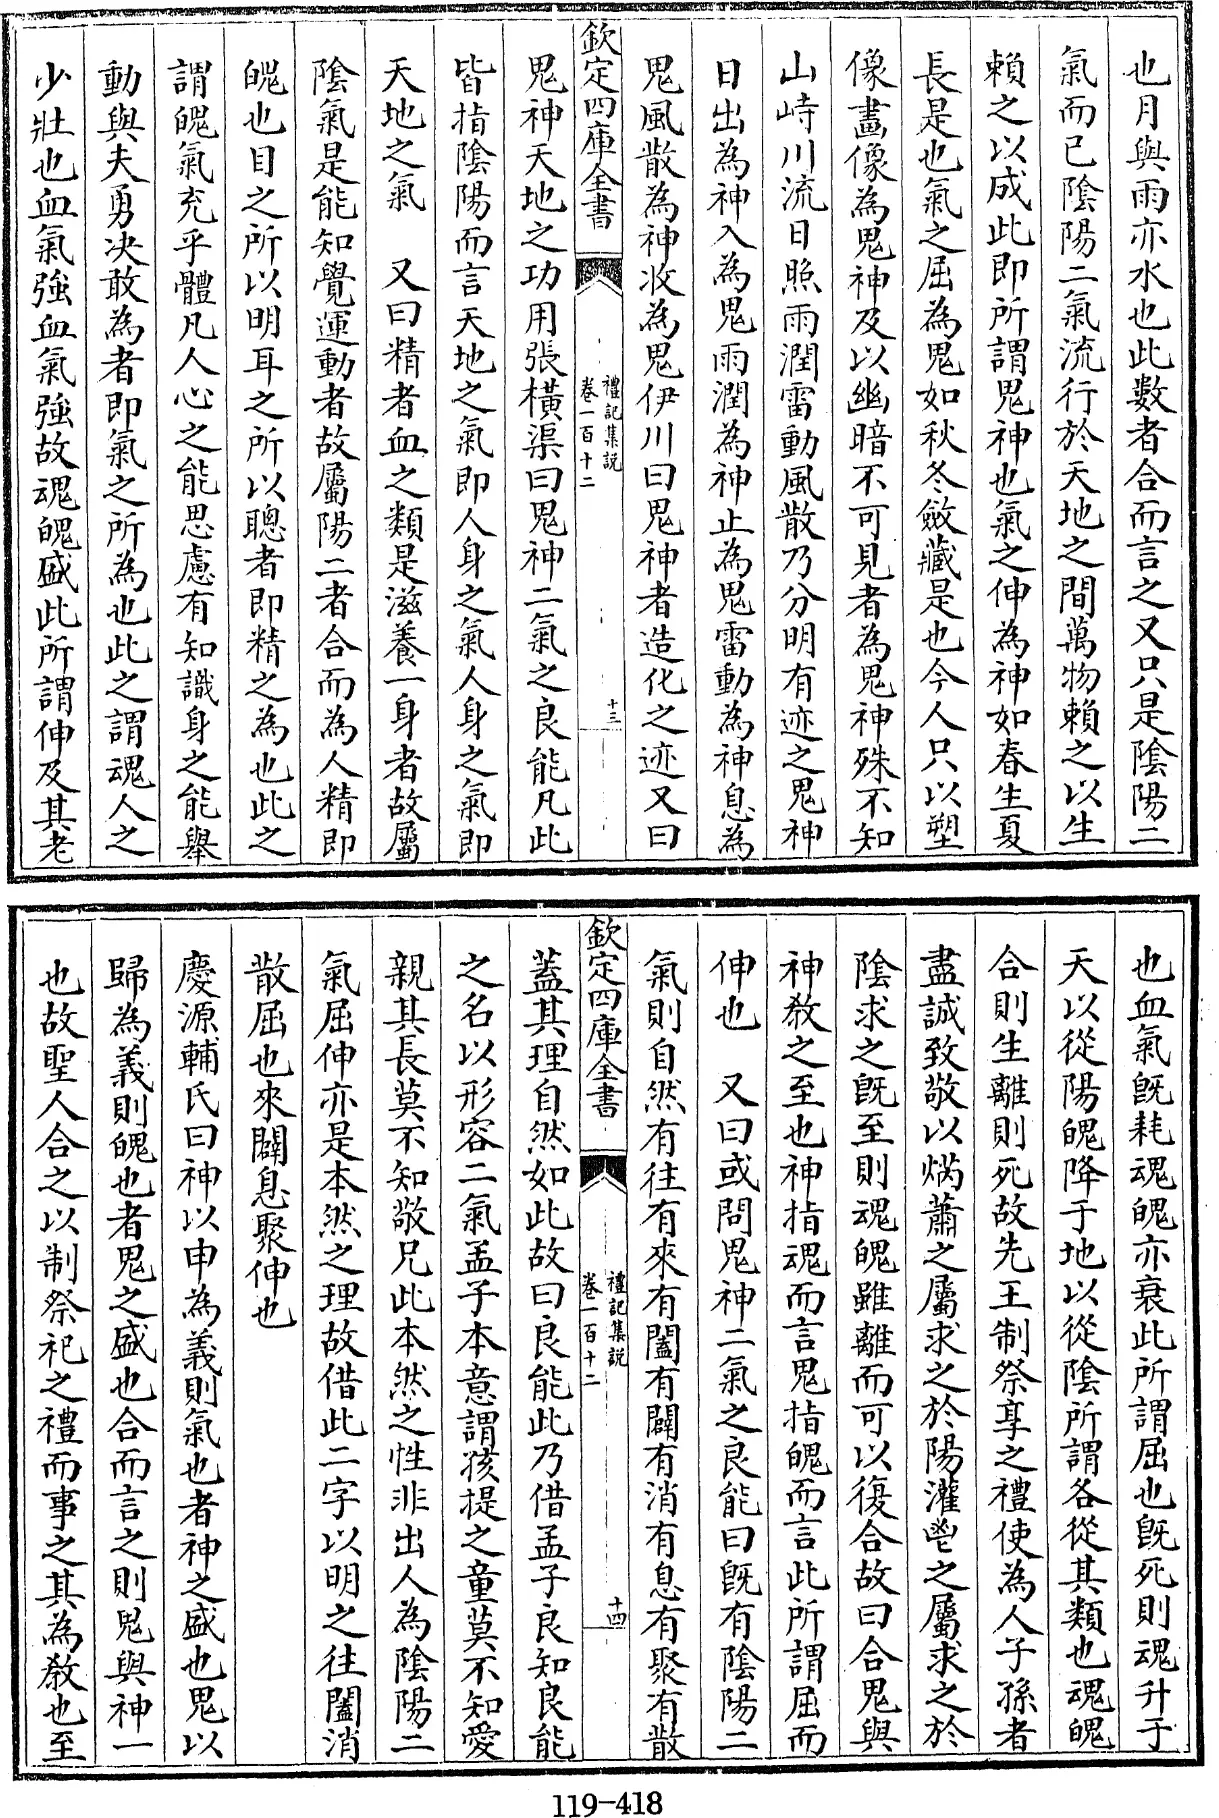 也月與雨亦水也此數者合而言之又只是陰陽二
氣而已陰陽二氣流行於天地之間萬物賴之以生
賴之以成此即所謂鬼神也氣之伸為神如春生夏
長是也氣之屈為鬼如秋冬斂藏是也今人只以塑
像畫像為鬼神及以幽暗不可見者為鬼神殊不知
山峙川流日照雨潤雷動風散乃分明有迹之鬼神
日出為神入為鬼雨潤為神止為鬼雷動為神息為
鬼風散為神收為鬼伊川曰鬼神者造化之迹又曰
欽定四庫全書
禮記集說
卷一百十二
十三
鬼神天地之功用張橫渠曰鬼神二氣之良能凡此
皆指陰陽而言天地之氣即人身之氣人身之氣即
天地之氣 又曰精者血之類是滋養一身者故屬
陰氣是能知覺運動者故屬陽二者合而為人精即
魄也目之所以明耳之所以聰者即精之為也此之
謂魄氣充乎體凡人心之能思慮有知識身之能舉
動與夫勇決敢為者即氣之所為也此之謂魂人之
少壯也血氣強血氣強故魂魄盛此所謂伸及其老
也血氣既耗魂魄亦衰此所謂屈也既死則魂升于
天以從陽魄降于地以從陰所謂各從其類也魂魄
合則生離則死故先王制祭享之禮使為人子孫者
盡誠致敬以焫蕭之屬求之於陽灌鬯之屬求之於
陰求之既至則魂魄雖離而可以復合故曰合鬼與
神教之至也神指魂而言鬼指魄而言此所謂屈而
伸也 又曰或問鬼神二氣之良能曰既有陰陽二
氣則自然有往有來有闔有闢有消有息有聚有散
欽定四庫全書
禮記集說
卷一百十二
十四
蓋其理自然如此故曰良能此乃借孟子良知良能
之名以形容二氣孟子本意謂孩提之童莫不知愛
親其長莫不知敬兄此本然之性非出人為陰陽二
氣屈伸亦是本然之理故借此二字以明之往闔消
散屈也來闢息聚伸也
慶源輔氏曰神以申為義則氣也者神之盛也鬼以
歸為義則魄也者鬼之盛也合而言之則鬼與神一
也故聖人合之以制祭祀之禮而事之其為教也至
119-418